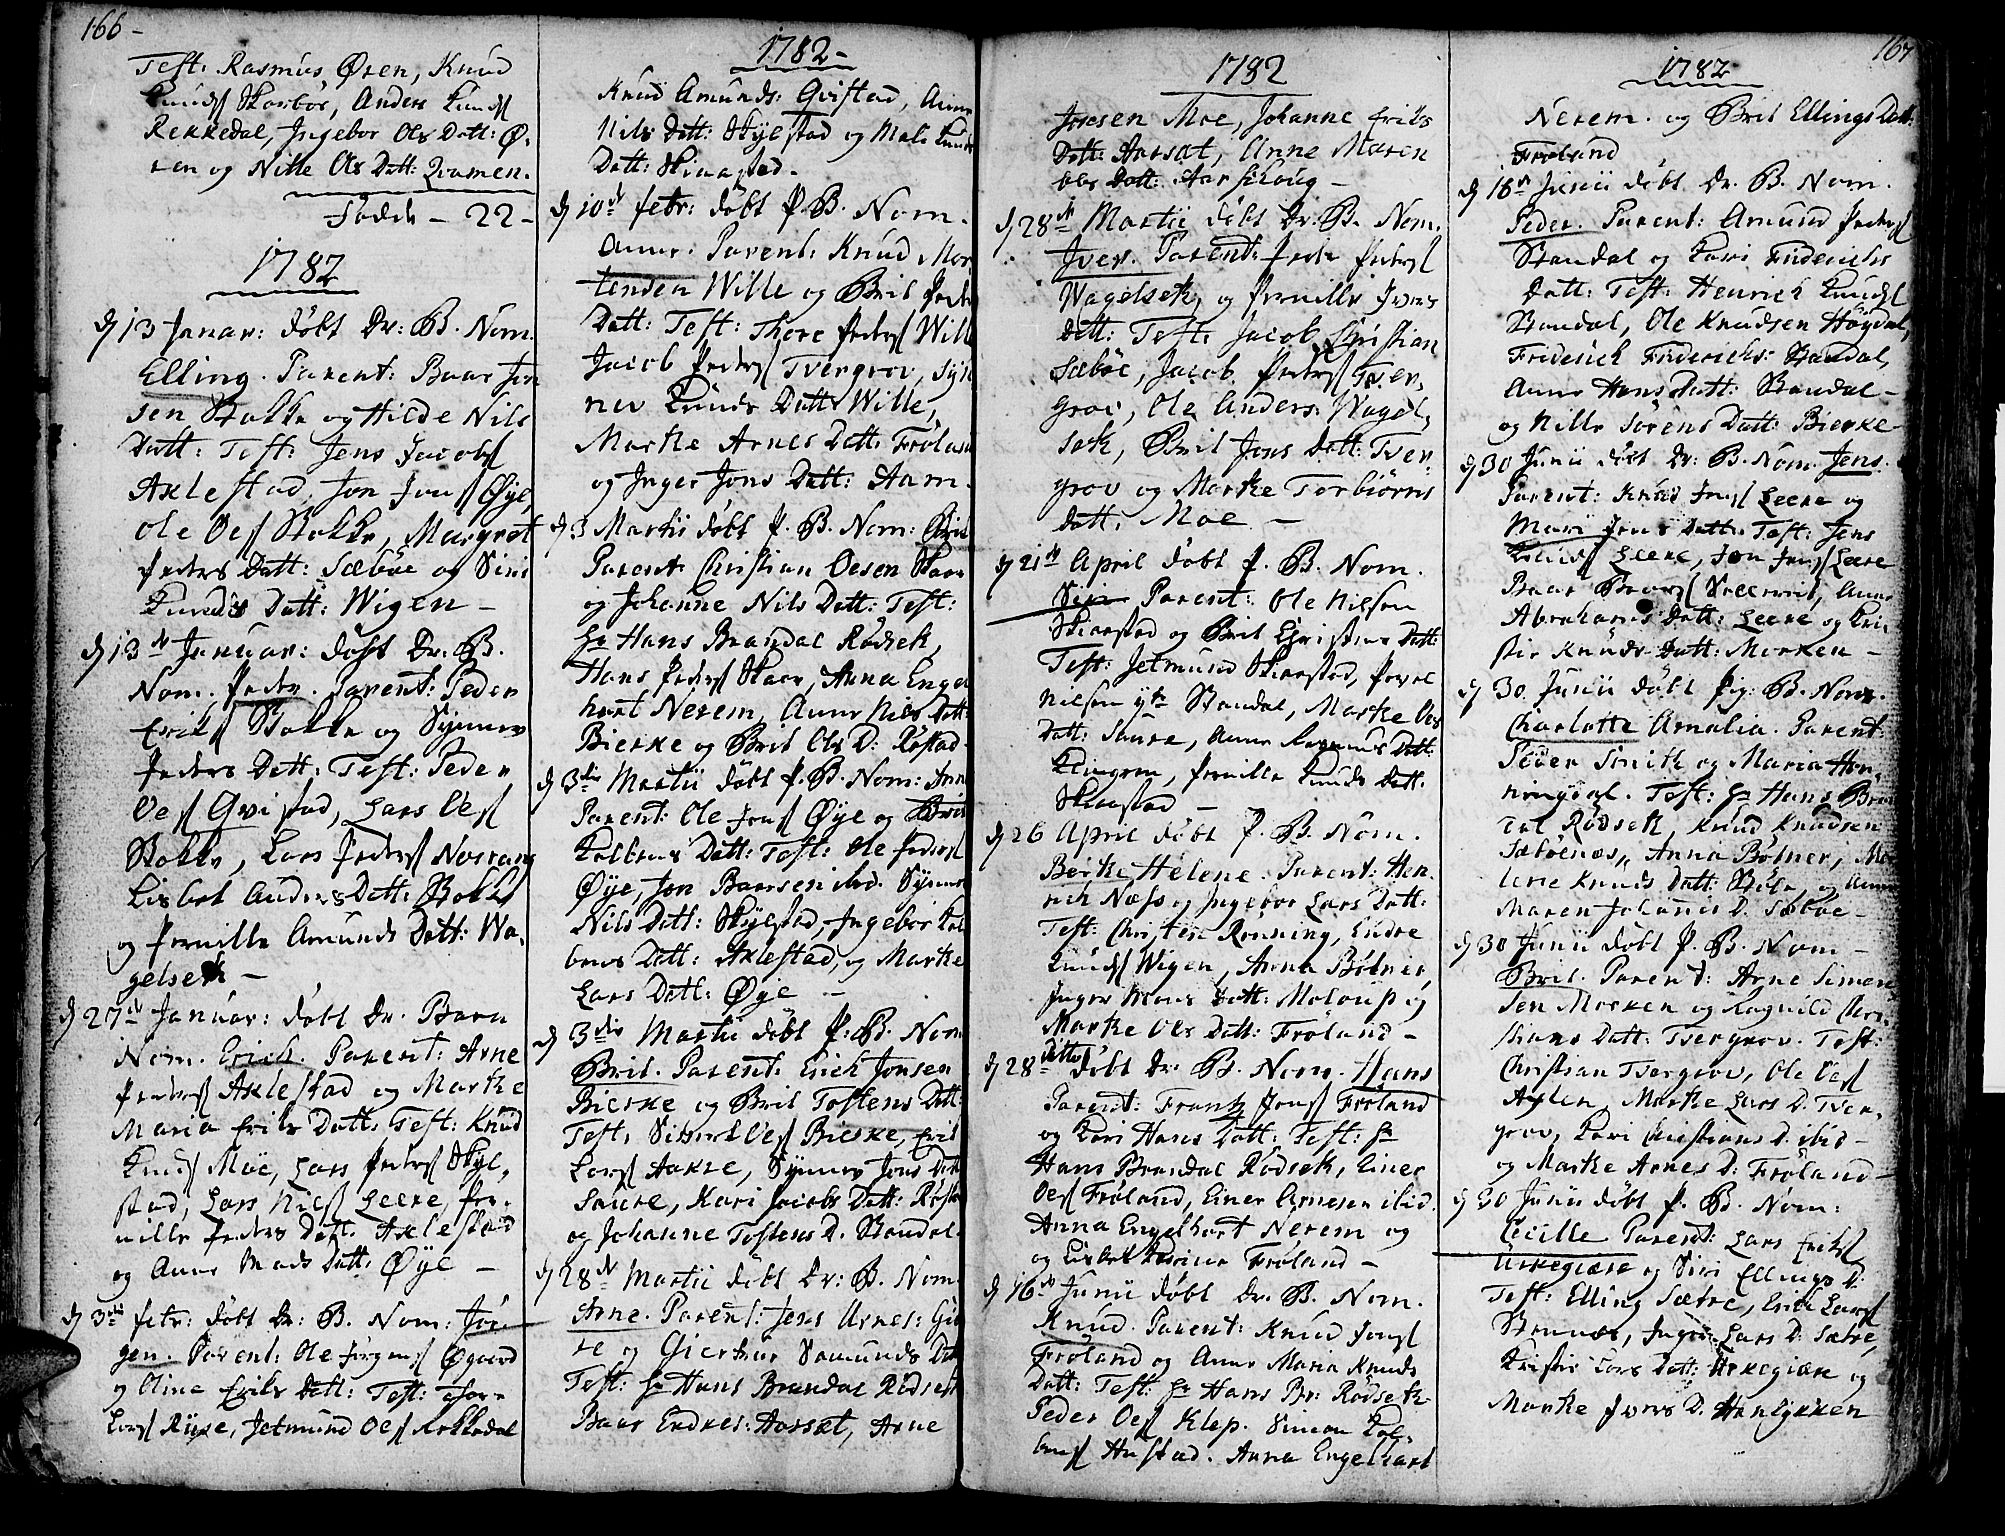 166-
Test: Rasmus Øren, Knud
Knuds Skorbøe, Anders Knuds
Rekkedal, Ingebor Ols Datt: Ø-
ren og Nille Ols Datt: Qvamen.
Fødde - 22-
1782
d 13 Januar: døbt Dr: B. Nom.
Elling. Parent: Baar Jon
sen Stokke og Hilde Nils
Datt: Test: Jens Jacobs
Axlestad, Jon Jons Øye,
Ole Oes Stokke, Margret
Peders Datt: Sæbøe og Siri
Knuds Datt: Wigen -
d 13 de Januar: døbt Dr. B.
Nom. Peder. Parent: Peder
Eriks Stokke og Synnev
Peders Datt: Test: Peder
Oes Qvistad, Lars Oes
Stokke, Lars Peders Nosvang
Lisbet Anders Datt: Stokke
og Pernille Amunds Datt: Wa-
gelsek -
d 27 de Januar: døbt Dr. Barn
Nom. Erich. Parent: Arne
Peders Axlestad og Marke
Maria Eriks Datt: Test: Knud
Knuds Møe, Lars Peders Skyl-
stad, Lars Nils Leere, Per-
nille Peders Datt: Axlestad
og Anne Mads Datt: Øye -
d 3 die Febr: døbt Dr: B. Nom: Jør-
gen. Parent: Ole Jørgens Øgaard
og Oline Eriks Datt: Test:
Lars Ryxe, Jetmund Oes Rekkedal
1782-
Knud Amunds: Qvistad, Anne
Nils Datt: Skylstad og Mali Knuds
Datt: Skiaastad.
d 10 de Febr: døbt P. B. Nom.
Anne. Parent: Knud Mor
tensen Wille og Brit Peders
Datt: Test: Thore Peders Wille
Jacob Peders Tvergrov, Syn
nev Knuds Datt: Wille,
Marke Arnes Datt: Frøland
og Inger Jons Datt: Aam.
d 3 Martii døbt P. B. Nom: Brit
Parent: Christian Oesen Skaar
og Johanne Nils Datt: Test:
Hr Hans Brandal Rødsek,
Hans Peders Skaar, Anna Engel
hart Nerem, Anne Nils Datt:
Bierke og Brit Ols D: Røstad-
d 3 die Martii døbt P. B. Nom: Anne
Parent: Ole Jons Øye og Brit
Kolbens Datt: Test: Ole Peders
Øye, Jon Baarsen ibid. Synnev
Nils Datt: Skylstad, Ingebor Kol
bens Datt: Axlestad, og Marke
Lars Datt: Øye -
d 3 die Martii døbt P. B. Nom
Brit. Parent: Erich Jonsen
Bierke og Brit Tostens Datt:
Test: Sivert Oes Bierke, Erik
Lars Aakre, Synnev Jons Datt:
Saure, Kari Jacobs Datt: Røstad
og Johanne Tostens D. Standal-
d 28 de Martii døbt Dr: B. Nom.
Arne. Parent: Jens Arnes: Giø
re og Giertrur Samunds Datt
Test: Hr Hans Brandal Rødsek
Baar Endres: Aarsæt, Arne
1782
Jonsen Moe, Johanne Eriks
Datt: Aarsæt, Anne Maren
Ols Datt: Aarskoug -
d 28 de Martii døbt Dr: B. Nom.
Iver. Parent: Peder Peders
Wagelsek, og Pernille Ivers
Datt: Test: Jacob Christian
Sæbøe, Jacob Peders Tver,
grov, Ole Anders: Wagel,
sek, Brit Jons Datt: Tver-
grov og Marke Torbiørns
Datt: Moe -
d 21 de April døbt P. B. Nom.
Siri Parent: Ole Nilsen
Skiaastad og Brit Christens Datt:
Test: Jetmund Skiaastad, Povel
Nilsen ytr Standal, Marke Ols
Datt: Saure, Anne Rasmus Datt:
Klungren, Pernille Knuds Datt:
Skiaastad -
d 26 April døbt P. B. Nom.
Berke Helene. Parent: Hen-
rich Næss og Ingebor Lars Datt:
Test: Christen Rønning, Endre
Knuds Wigen, Anna Bøtner,
Inger Mons Datt: Moloup og
Marke Ols Datt: Frøland -
d 28 de ditto døbt Dr. B. Nom. Hans
Parent: Frantz Jons Frøland
og Kari Hans Datt: Test: Hr
Hans Brandal Rødsek, Einer
Oes Frøland, Einer Arnesen ibid.
Anna Engelhart Nerem og
og Lisbet Frøland -
d 16 de Junii døbt Dr. B. Nom.
Knud. Parent: Knud Jons
Frøland og Anne Maria Knuds
Datt: Test: Hr Hans Br: Rødsek-
Peder Oes Klep. Simon Kol-
bens Hustad. Anna Engelhart
167
1782
Nerem. og Brit Ellings Datt:
Frøland
d 16 de Junii døbt Dr. B. Nom.
Peder. Parent: Amund Peders
Standal og Kari Friderichs
Datt: Test: Henrich Knuds
Standal, Ole Knudsen Høydal,
Friderich Friderichs: Standal,
Anne Hans Datt: Standal-
og Nille Sørens Datt: Bierke
d 30 Junii døbt Dr: B. Nom. Jens.
Parent: Knud Jens Leere og
Mari Jens Datt: Test: Jens
Knuds Leere, Jon Jons Leere
Baar Baars, Anne
Abrahams Datt: Leere og Kri-
stie Knuds Datt: Morken -
d 30. Junii døbt Pig: B. Nom.
Charlotte Amalia. Parent:
Peder Smith og Maria Hen-
ningdal. Test: Hr Hans Bran
dal Rødsek, Knud Knudsen
Sæbøenæs, Anna Bøtner, Ma
lene Knuds Datt: Bøle, og Anne
Maren Johannis D. Sæbøe-
d 30 Junii døbt P. B. Nom -
Brit. Parent: Arne Simen
sen Morken og Ragnild Chri-
stians Datt: Tvergrov. Test:
Christian Tvergrov, Ole Oes
Aslen, Marke Lars D. Tver-
grov, Kari Christians D. ibid-
og Marke Arnes D. Frøland-
d 30 Junii døbt P. B. Nom:
Cicille Parent: Lars Eriks
Urkegiære og Siri Ellings D:
Test: Elling Sætre, Erik Lars
Stennes, Inger Lars D: Sætre,
Kristie Lars Datt: Urkegiære og
Marke Ivers D. Haulykken